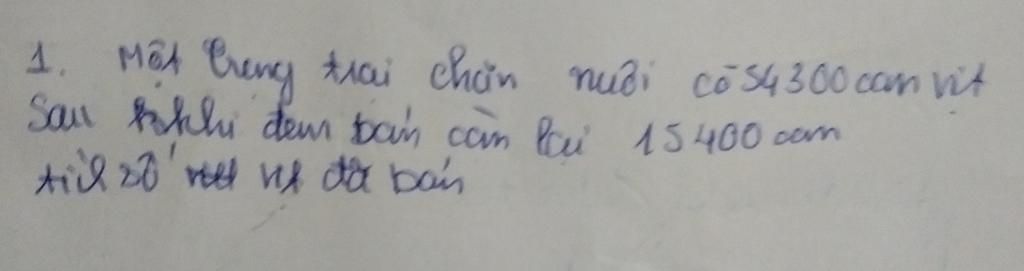 1. Một trang trại chăn nuôi có 54300 con vịt
Sau khi đem bán còn lại 15400 con
tìm số vịt đã bán